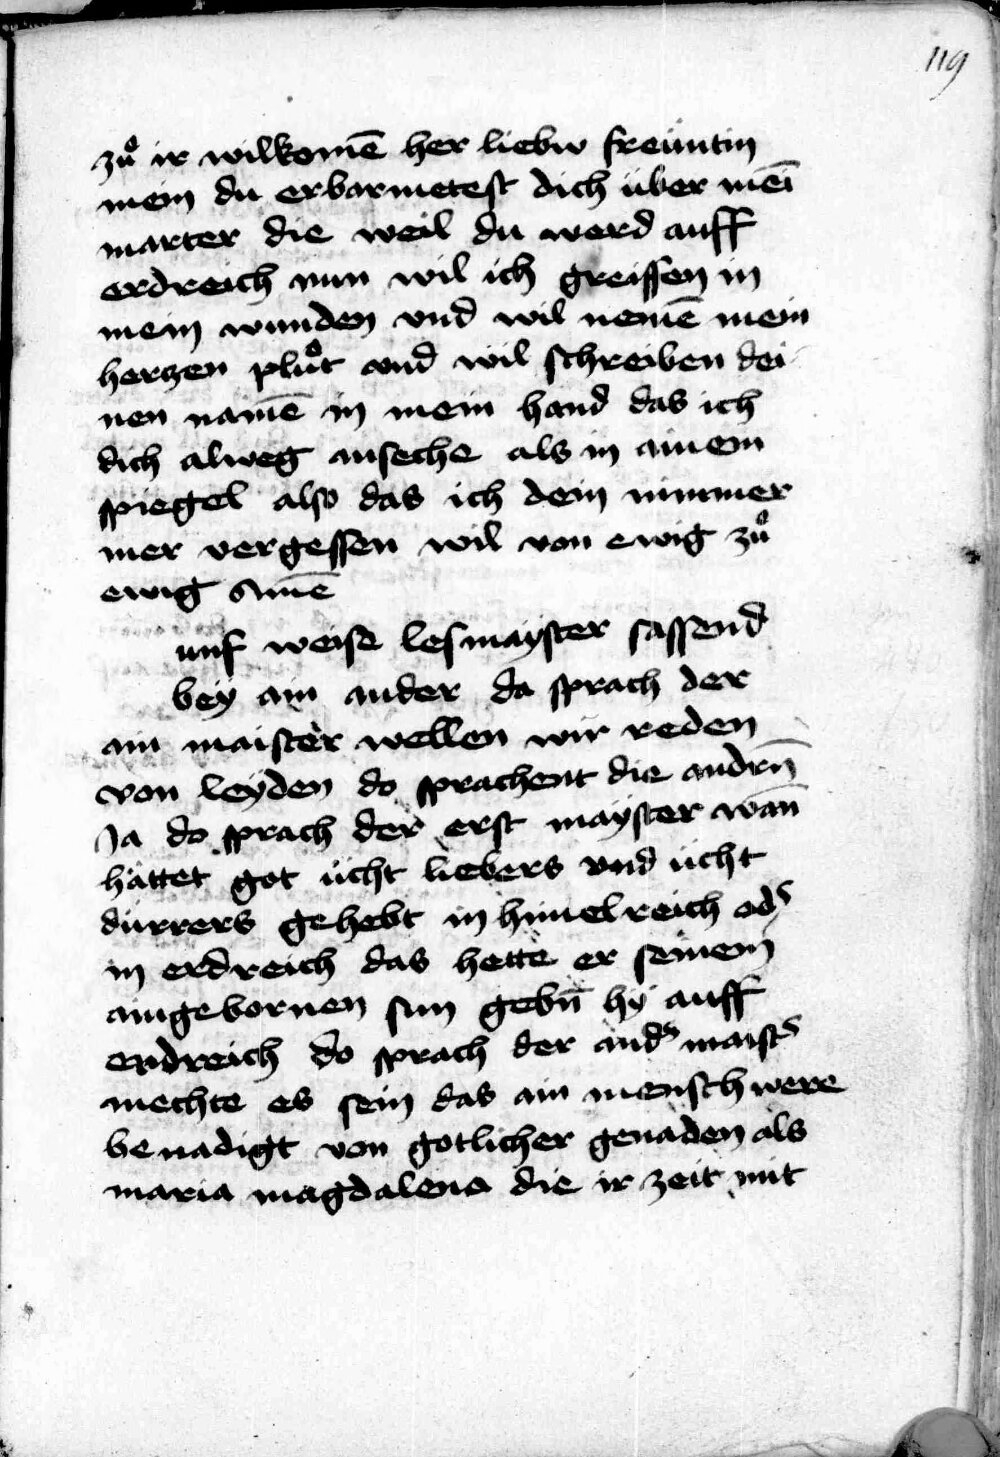 119
zuͦ ir wilkomē her liebw freüntin
mein du erbarmetest dich über mei̅
marter die weil du werd auff
erdreich nun wil ich greiffen in
mein wunden vnd wil nemē mein
herzen pluͦt vnd wil schreiben dei
nen namē in mein hand das ich
dich alweg anseche als in ainem
spiegel also das ich dein nimmer
mer vergessen wil von ewig zuͦ
ewig Amē
unf weise lesmayster sassend
bey ain ander da sprach der
ain maister wellen wir reden
von leyden do sprachent die andrn̄
Ja do sprach der erst mayster wan̄
hattet got ücht liebers vnd ücht
dürrers gehebt in himelreich od᾽
in erdreich das hette er seinem
aingebornen sun gebn̄ hy auff
erdreich do sprach der and᾽ maist᾽
mechte es sein das ain mensch were
benadigt von gotlicher genaden als
maria magdalena die ir zeit mit